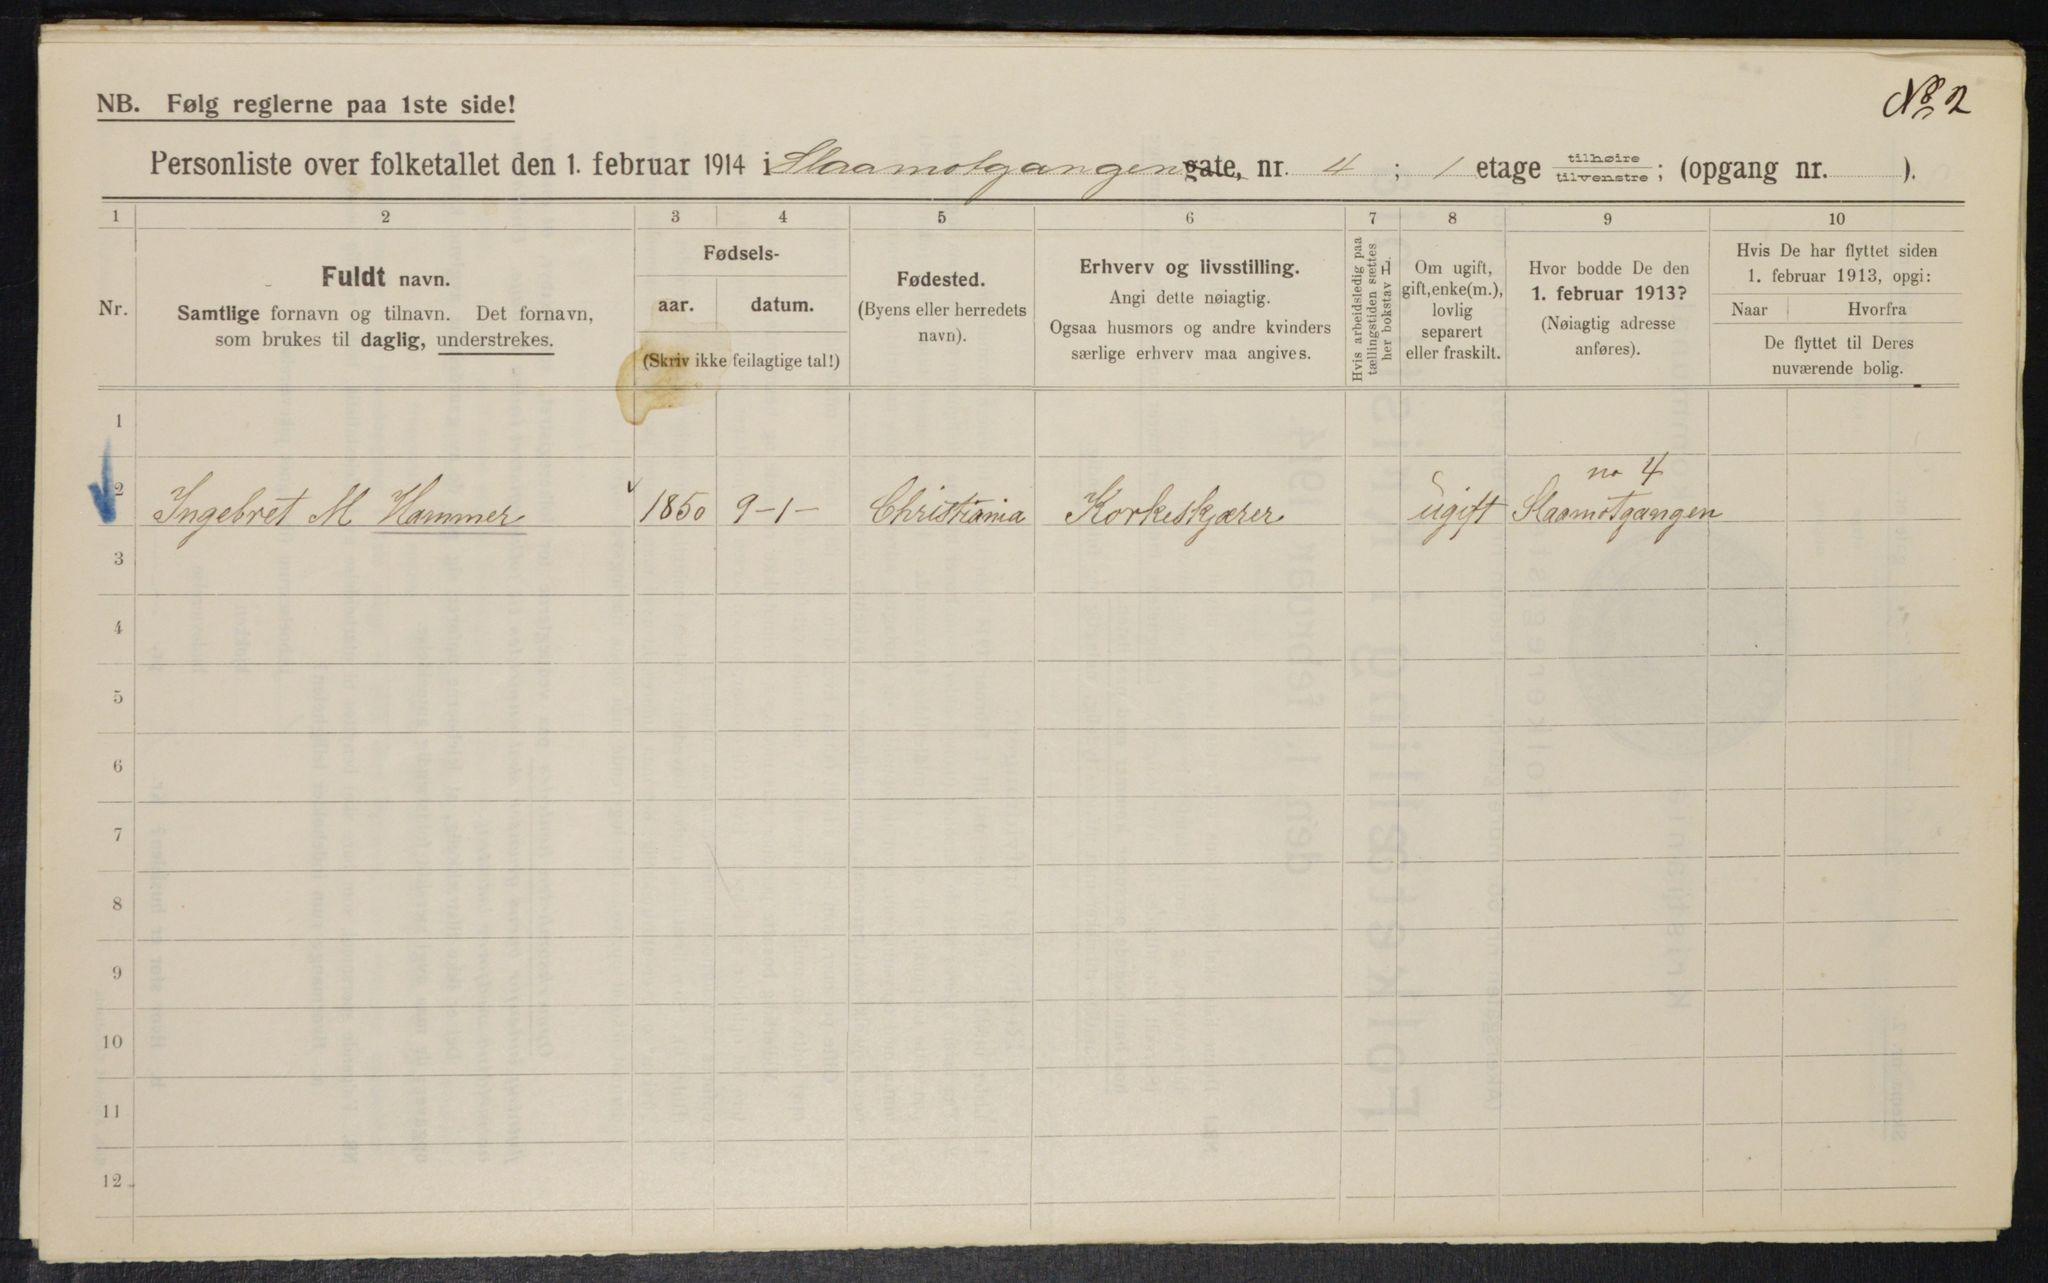 NB. Følg reglerne paa 1ste side!
No 2
Personliste over folketallet den 1. februar 1914 i Slaamotgangen gate, nr. 4 ; 1 etage tilhøire tilvenstre ; (opgang nr. ).
1 2 3 4 5 6 7 8 9 10
Nr.
Fuldt navn.
Samtlige fornavn og tilnavn. Det fornavn,
som brukes til daglig, understrekes.
Fødsels-
aar. datum.
(Skriv ikke feilagtige tal!)
Fødested.
(Byens eller herredets
navn).
Erhverv og livsstilling.
Angi dette nøiagtig.
Ogsaa husmors og andre kvinders
særlige erhverv maa angives.
Hvis arbeidsledig paa
tællingstiden sættes
her bokstav H.
Om ugift,
gift, enke(m.),
lovlig
separert
eller fraskilt.
Hvor bodde De den
1. februar 1913?
(Nøiagtig adresse
anføres).
Hvis De har flyttet siden
1. februar 1913, opgi:
Naar Hvorfra
De flyttet til Deres
nuværende bolig.
1
no 4
2 Ingebret M Hammer 1850 9-1- Christiania Korkeskjærer ugift Slaamotgangen
3
4
5
6
7
8
9
10
11
12